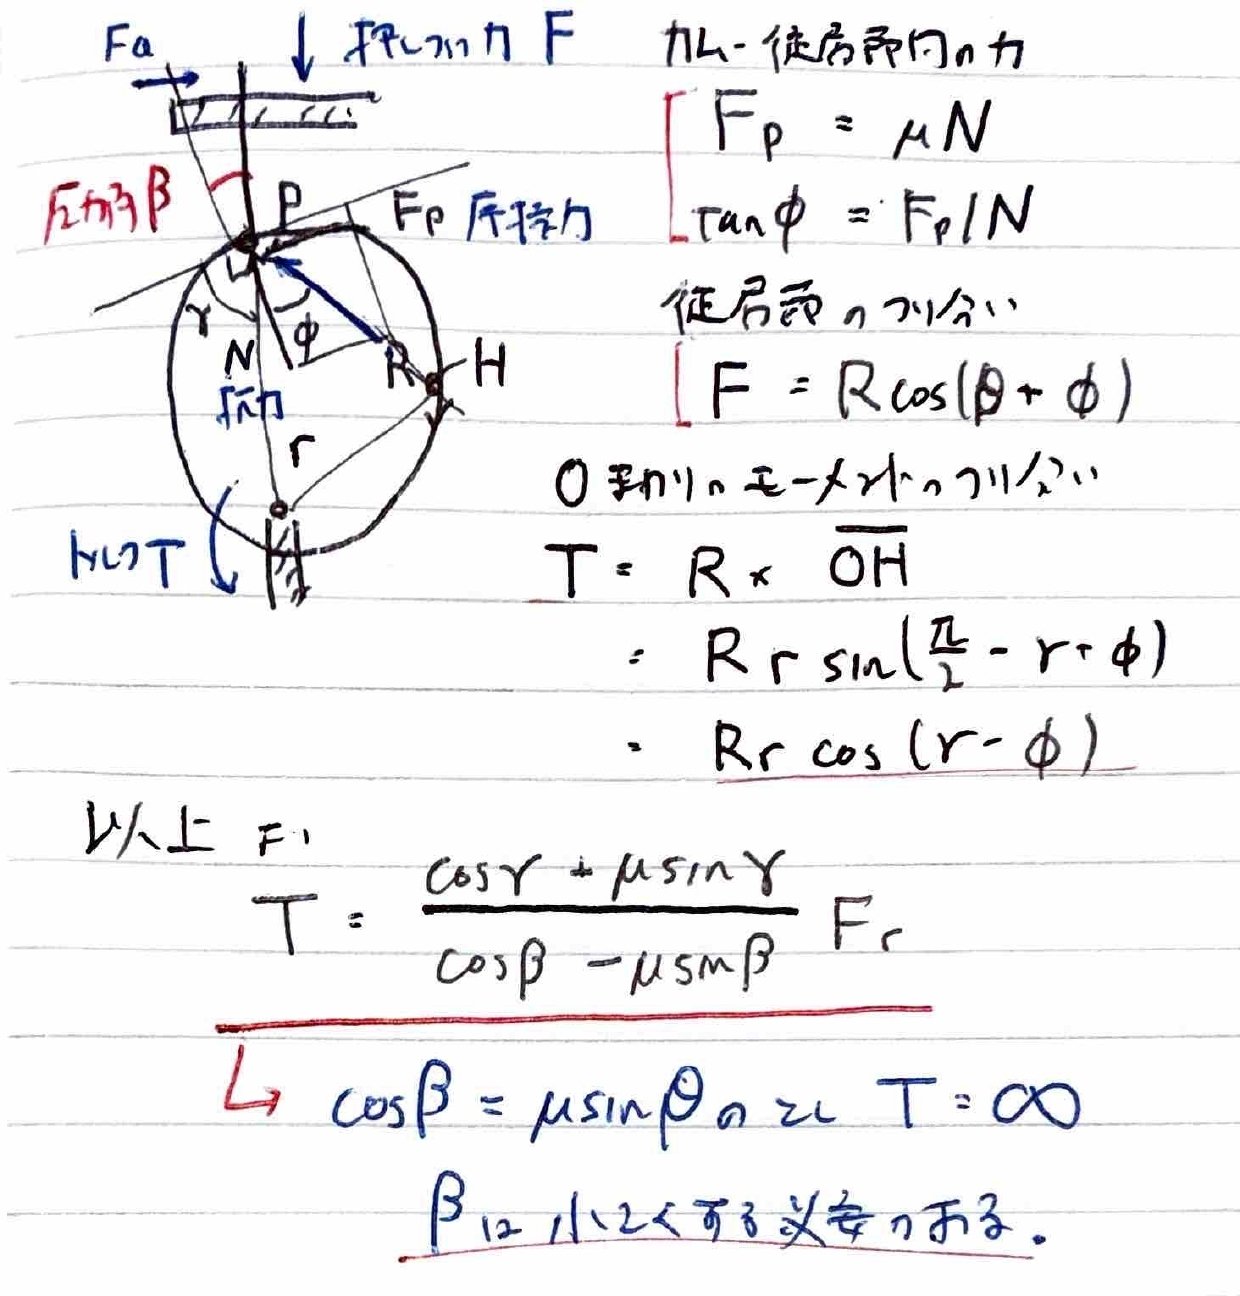 Fa
押しつけ力 F
圧力角 β
P
Fp 摩擦力
γ
N
φ
抗力
R
H
r
トルク T
カム-従局節間の力
Fp = μN
tanφ = Fp/N
従局節のつり合い
F = R cos(β + φ)
O まわりのモーメントのつり合い
T = R × OH
= R r sin(π/2 - γ + φ)
= Rr cos (γ - φ)
以上より
T = (cosγ + μsinγ)/(cosβ - μsinβ) Fr
↳ cosβ = μsinβ のとき T = ∞
βは小さくする必要がある.